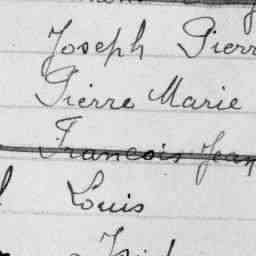 Joseph Pierr
Pierre Marie
Francois Jean
Louis